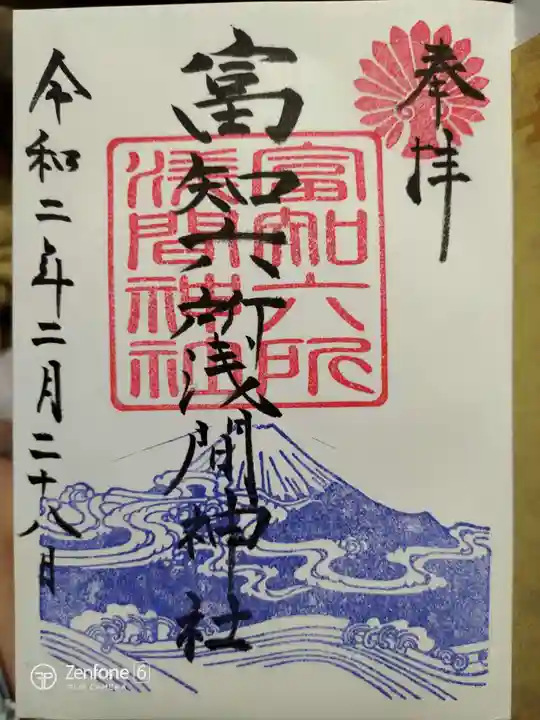 奉拝
富知六所浅間神社
富知六所
浅間神社
令和二年二月二十八日
Zenfone 6
DUAL CAMERA